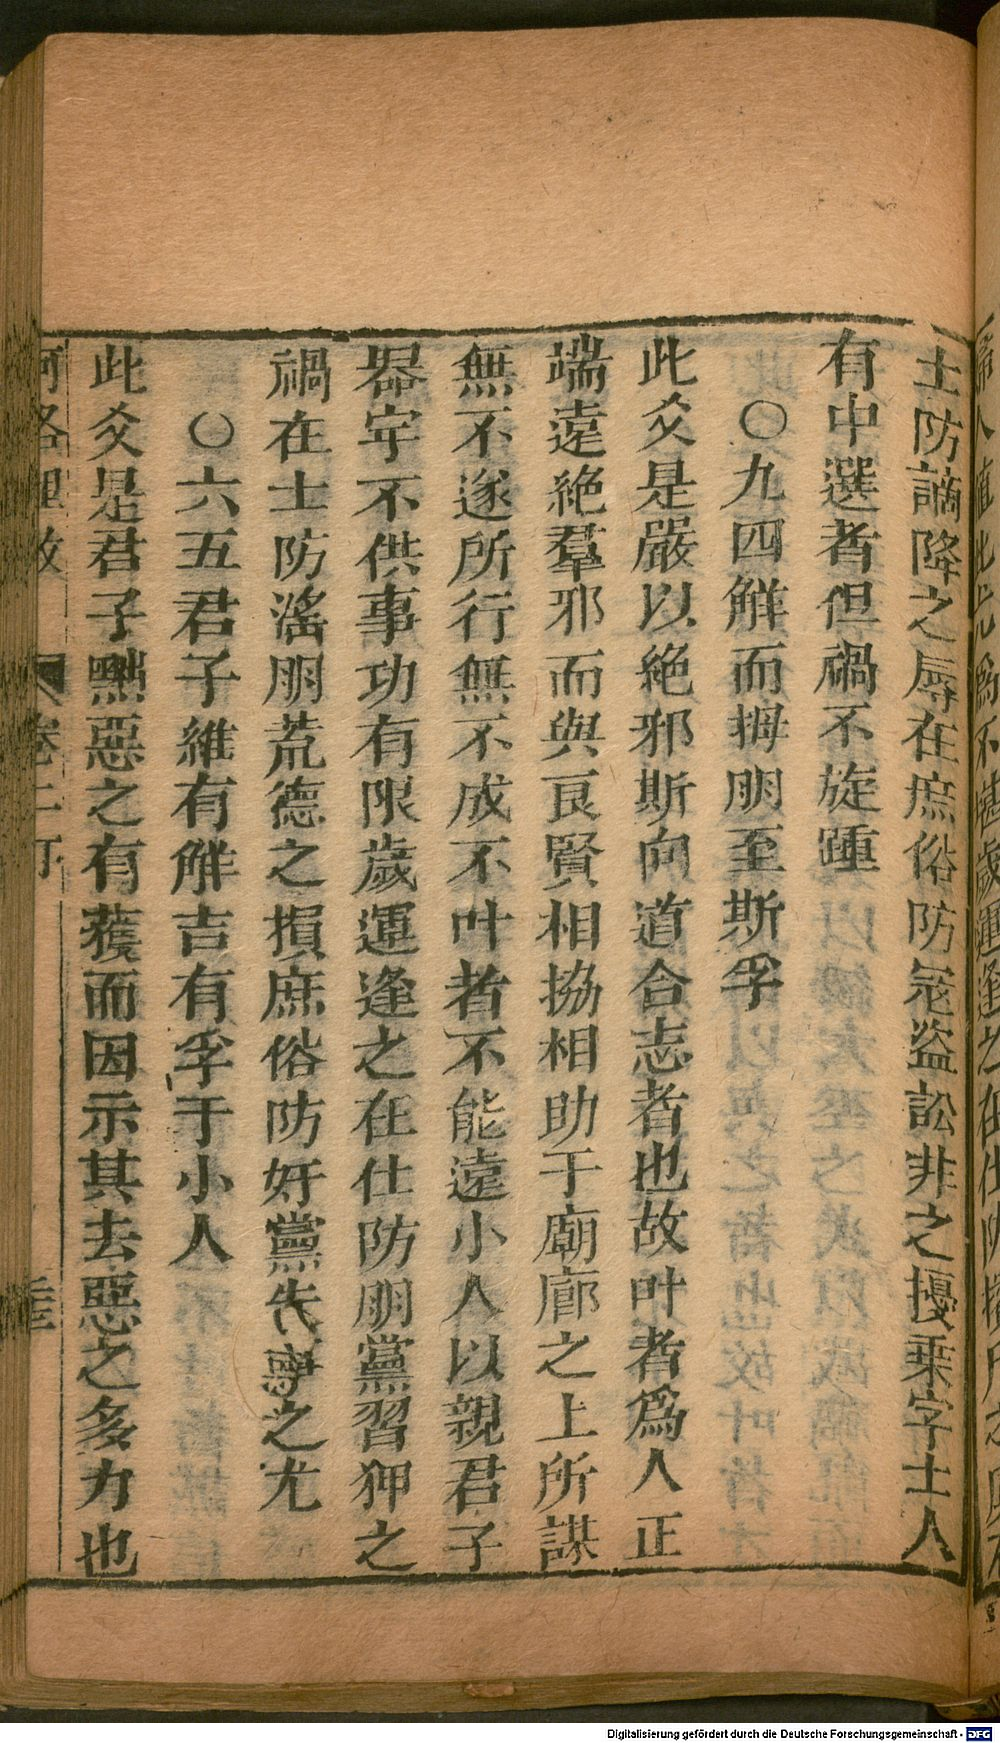 士防謫降之辱在庶俗防寇盜訟非之擾乘字士人
有中選者但禍不旋踵
○九四解而拇朋至斯孚
此爻是嚴以絕邪斯向道合志者也故叶者爲人正
端遠絕羣邪而與良賢相協相助于廟廊之上所謀
無不遂所行無不成不叶者不能遠小人以親君子
器宇不供事功有限歲運逢之在仕防朋黨習狎之
禍在士防滛朋荒德之損庶俗防奸黨失專之尤
○六五君子維有解吉有孚于小人
此爻是君子黜惡之有獲而因示其去惡之多力也
河洛理數 卷二
Digitalisierung gefördert durch die Deutsche Forschungsgemeinschaft - DFG